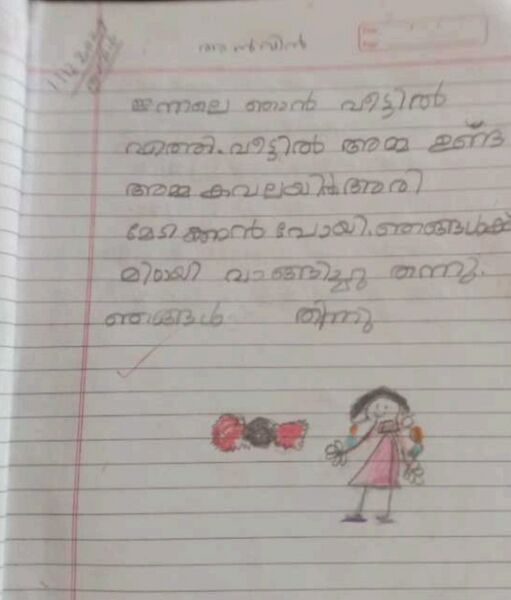 അൻവിൻ
ഇന്നലെ ഞാൻ വീട്ടിൽ
എത്തി. വീട്ടിൽ അമ്മ ഉണ്ട
അമ്മ കവലയിൽ അരി
മേടിക്കാൻ പോയി. ഞങ്ങൾക്ക്
മിഠായി വാങ്ങിച്ചു തന്നു.
ഞങ്ങൾ തിന്നു